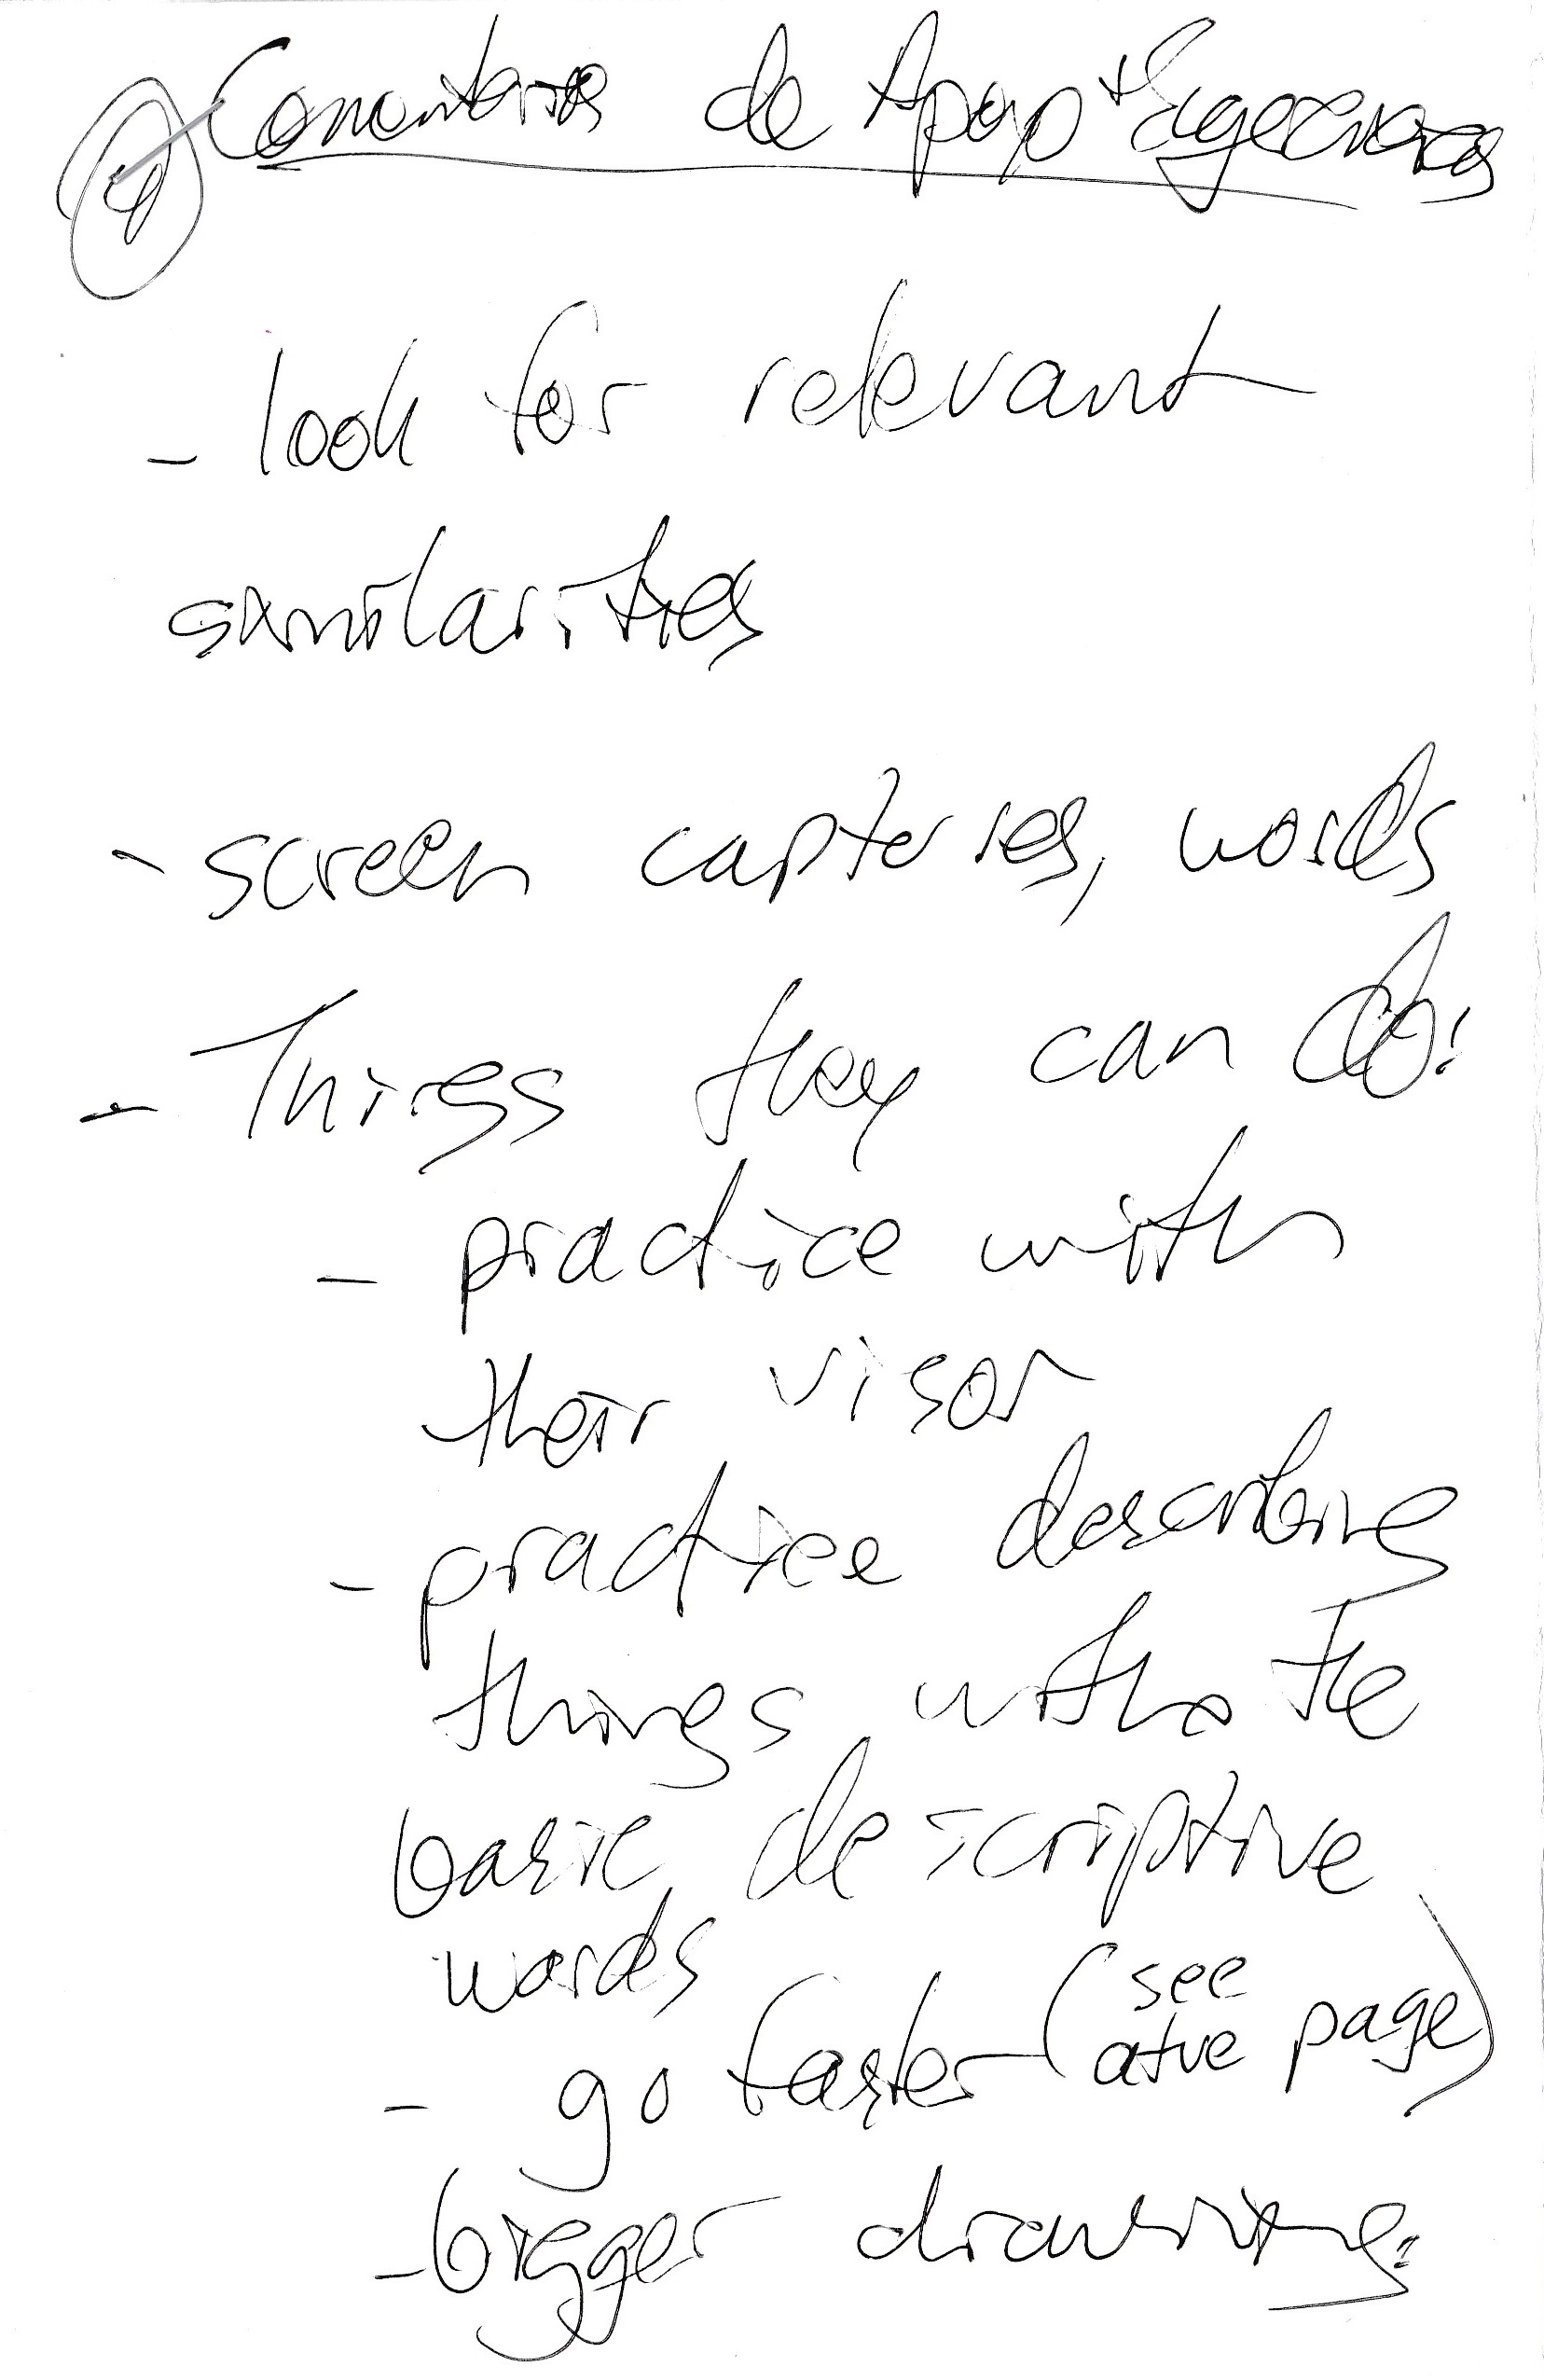 4) Comentarios de Apoyo + Sugerencias
- look for relevant
similarities
- screen captures, words
- Things they can do:
- practice with
their visor
- practice describing
things with the
basic descriptive
words
- go faster (see
page)
- bigger drawings